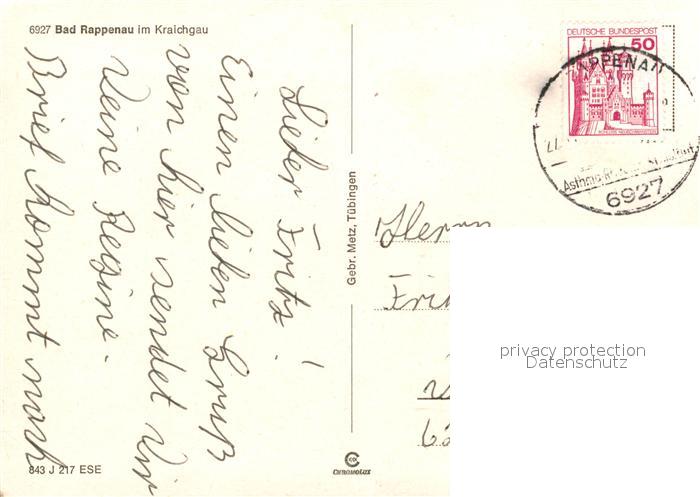 6927 Bad Rappenau im Kraichgau
Lieber Fritz!
Einen lieben Gruß
von hier sendet Dir
Deine Regine.
Brief kommt noch
843 J 217 ESE
Gebr. Metz, Tübingen
CHROMOLUX
DEUTSCHE BUNDESPOST
50
RAPPENAU
6927
Herrn
privacy protection
Datenschutz